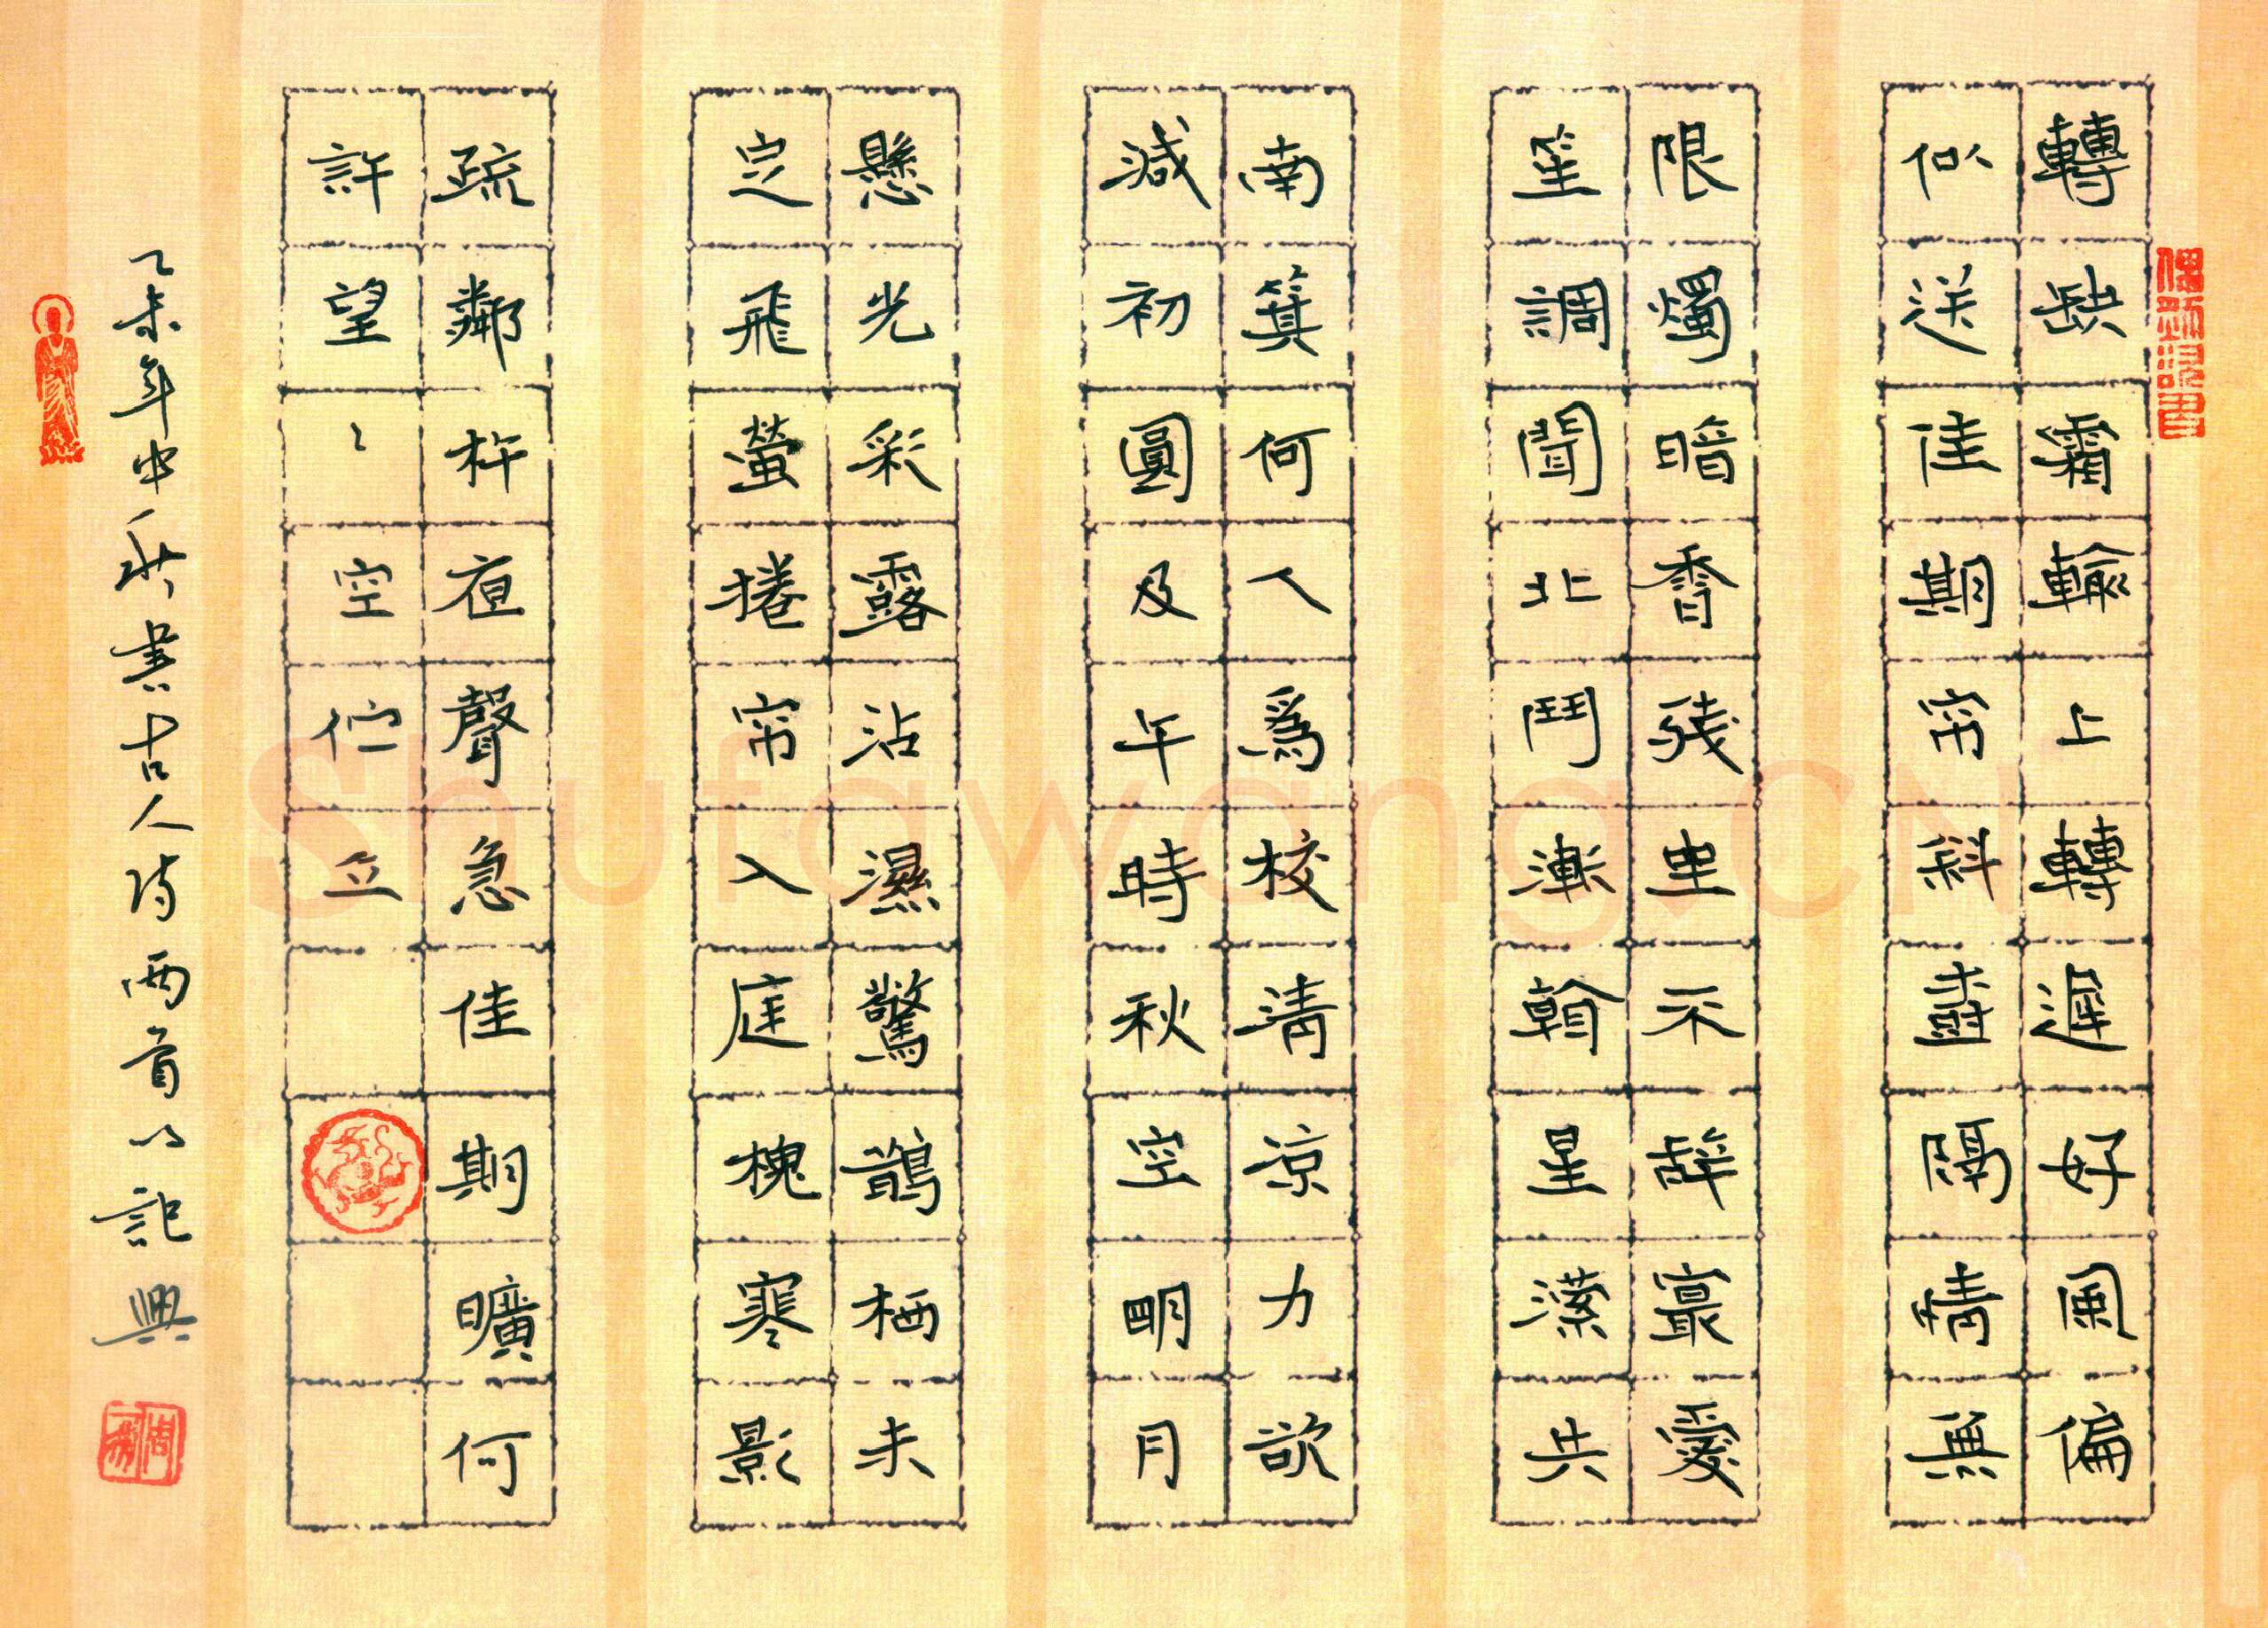 轉缺霜輪上轉遲好風偏
似送佳期帘斜樹隔情無
限燭暗香殘坐不辭最愛
笙調聞北鬥漸看星瀠共
南箕何人爲校清涼力欲
減初圓及午時秋空明月
懸光彩露沾濕驚鵲栖未
定飛螢捲帘入庭槐寒影
疏鄰杵夜聲急佳期曠何
許望々空佇立
乙未年中秋書古人詩兩首以記興
Shufawang.CN